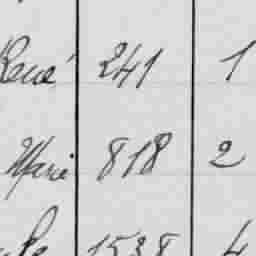 René 241 1
Marie 818 2
1538 4